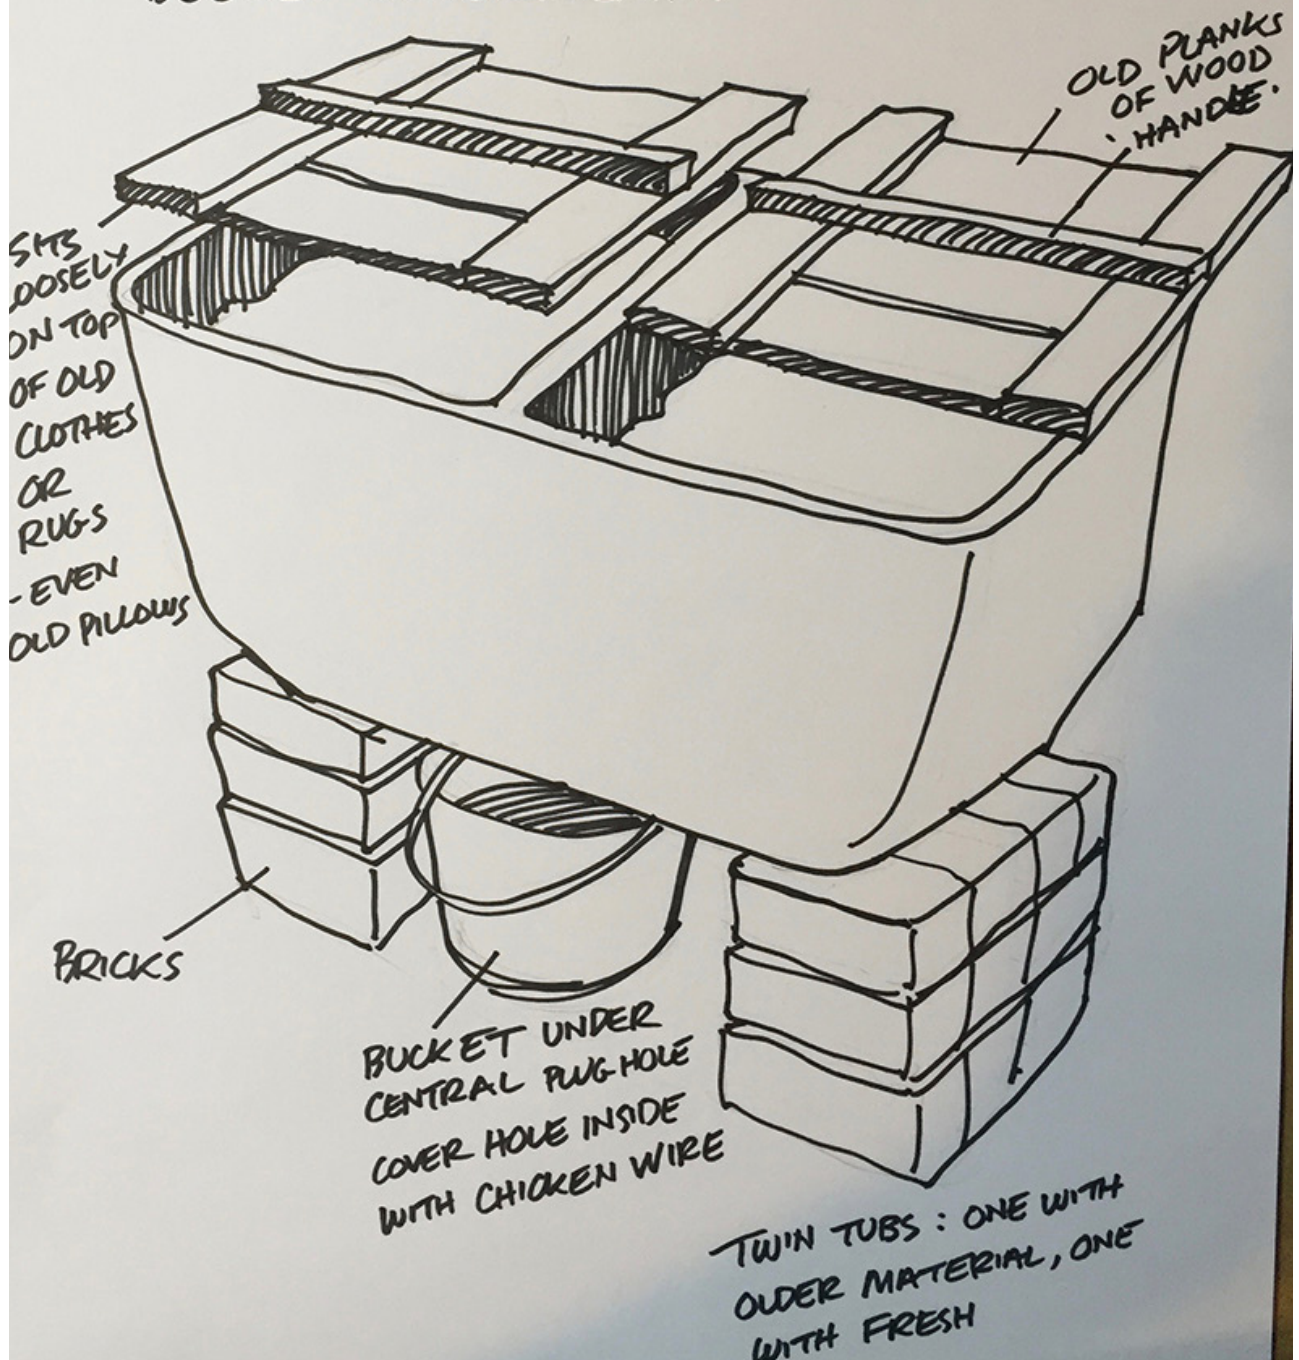 OLD PLANKS
OF WOOD
HANDLE.
SITS
LOOSELY
ON TOP
OF OLD
CLOTHES
OR
RUGS
- EVEN
OLD PILLOWS
BRICKS
BUCKET UNDER
CENTRAL PLUGHOLE
COVER HOLE INSIDE
WITH CHICKEN WIRE
TWIN TUBS : ONE WITH
OLDER MATERIAL, ONE
WITH FRESH